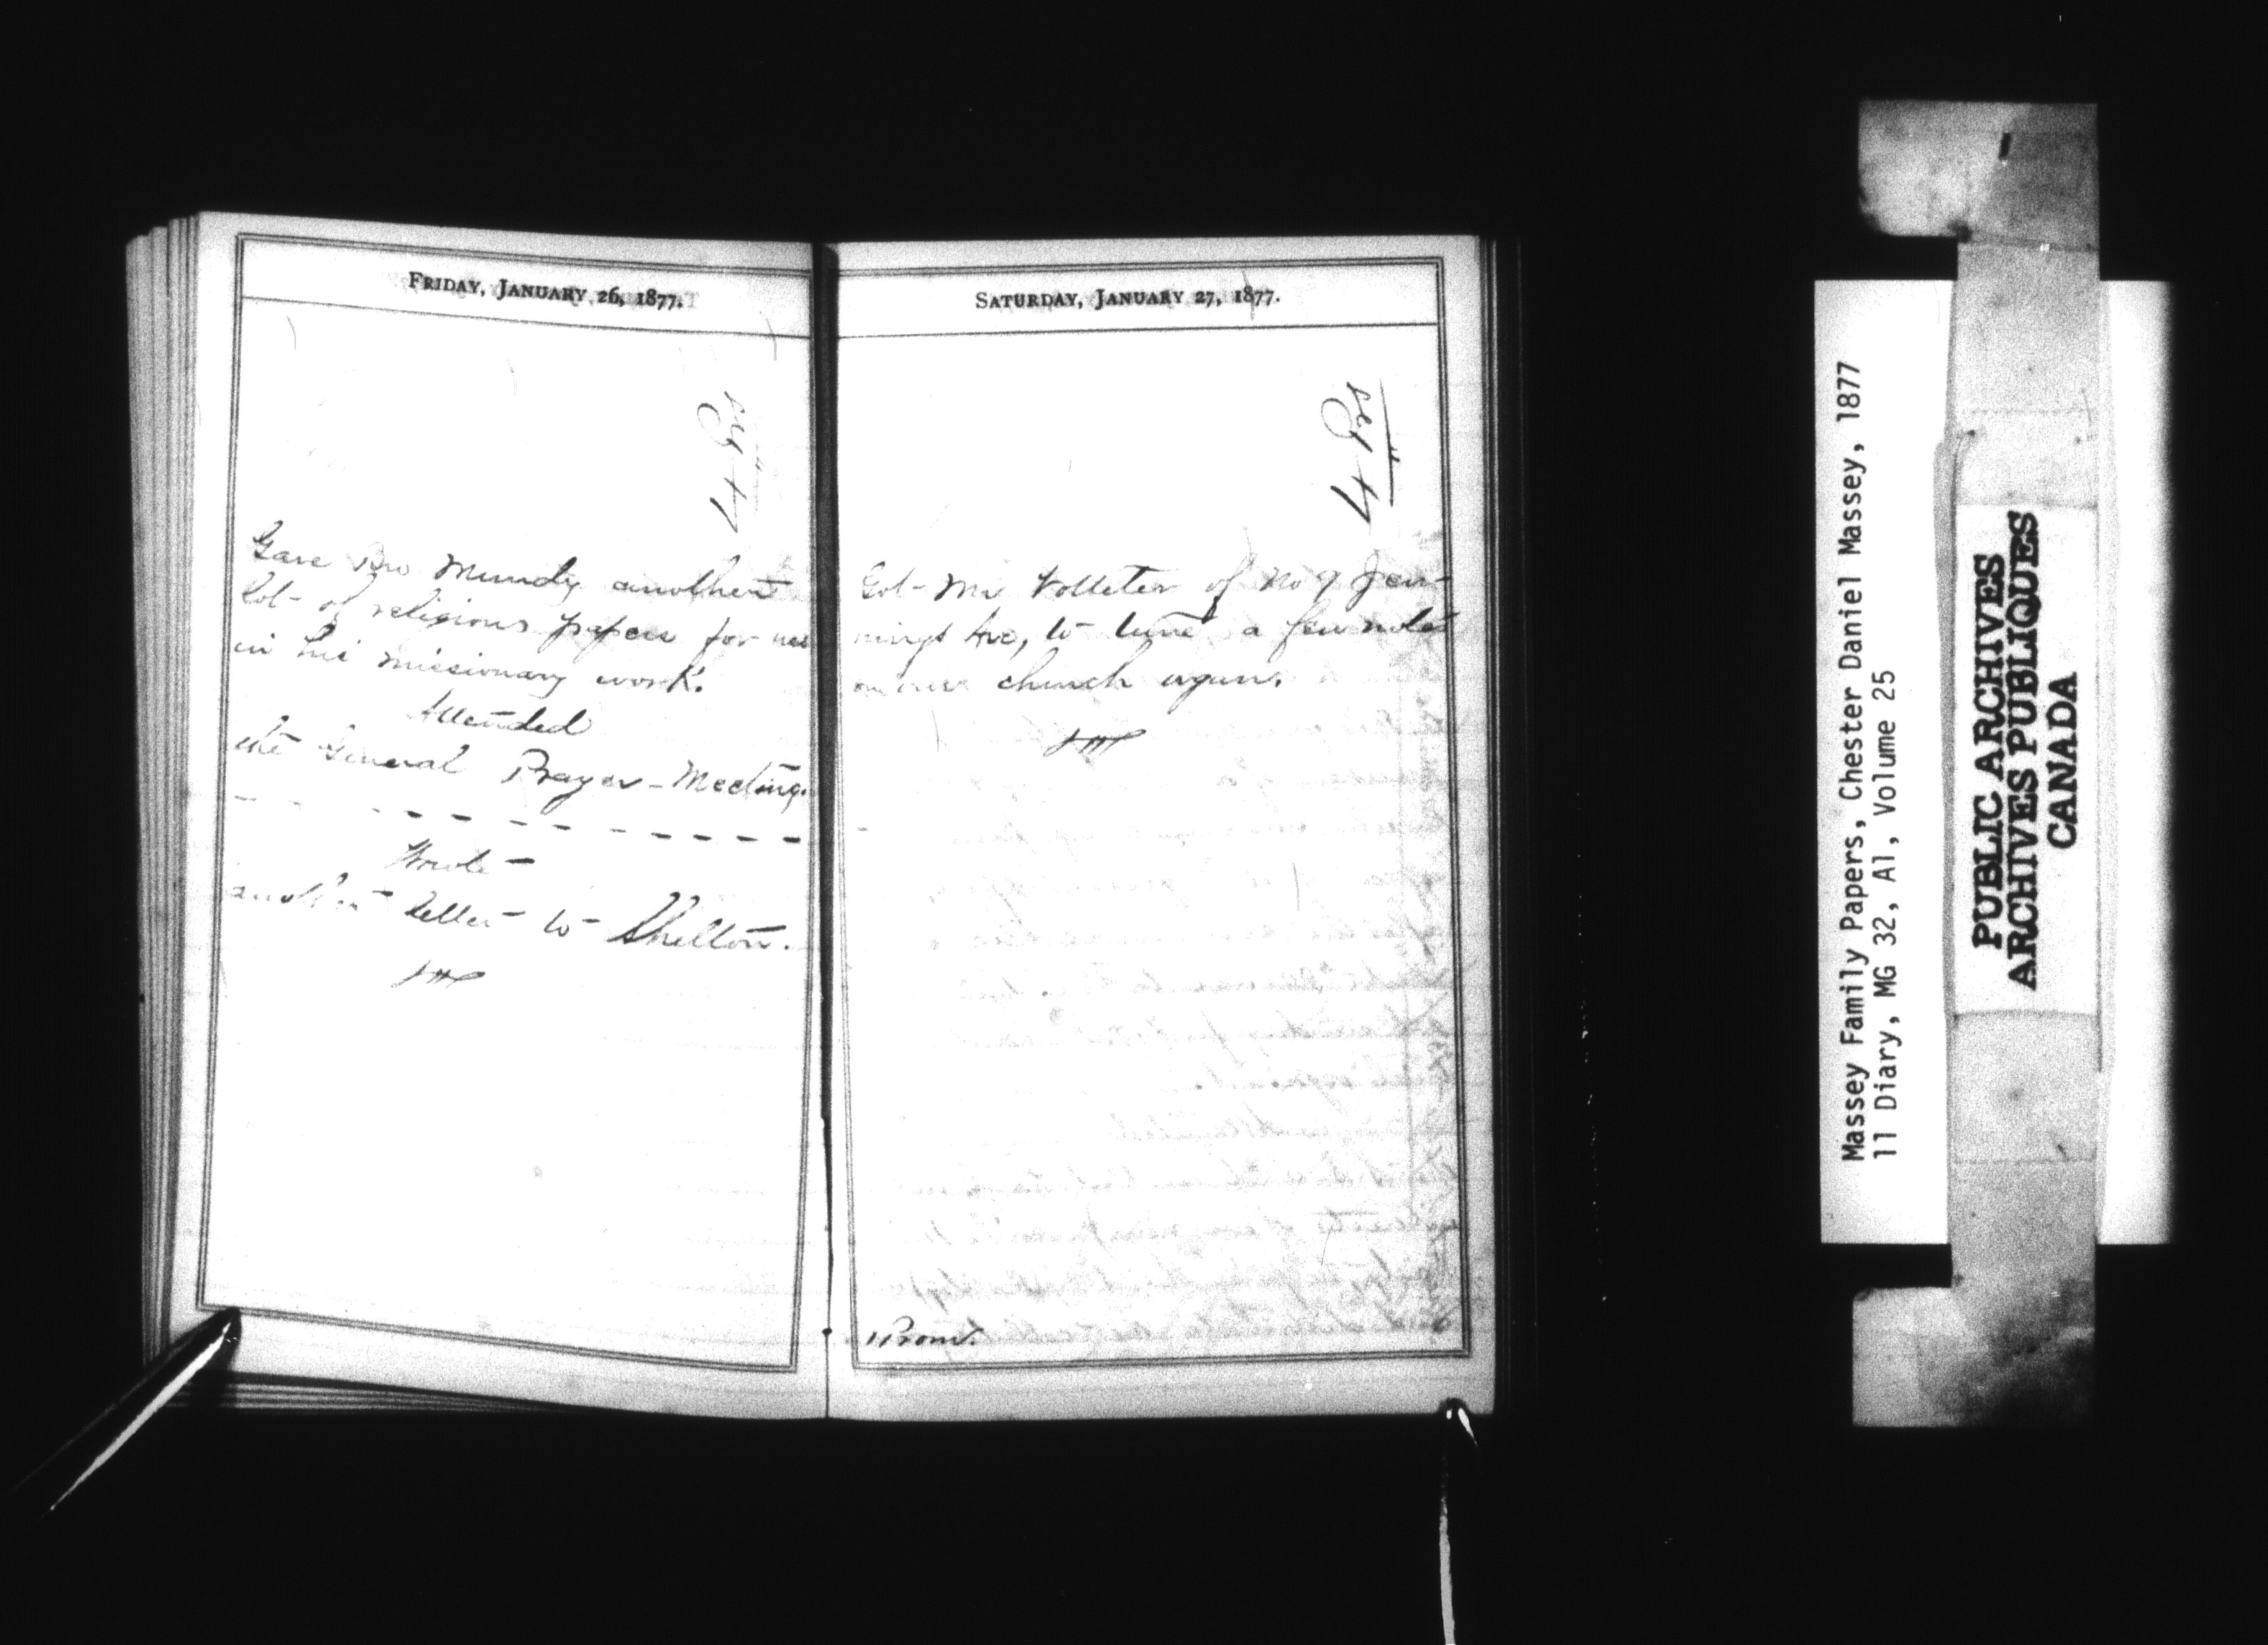 FRIDAY, JANUARY 26, 1877.
Gave Bro Mundy another
lot of religious papers for use
in his missionary work.
Attended
the General Prayer-Meeting.
Wrote
another letter to Shelton.
SATURDAY, JANUARY 27, 1877.
Got Mr of No 9 Jen-
nings Ave, to tune a few notes
on our church organ.
Massey Family Papers, Chester Daniel Massey, 1877
11 Diary, MG 32, A1, Volume 25
PUBLIC ARCHIVES
ARCHIVES PUBLIQUES
CANADA